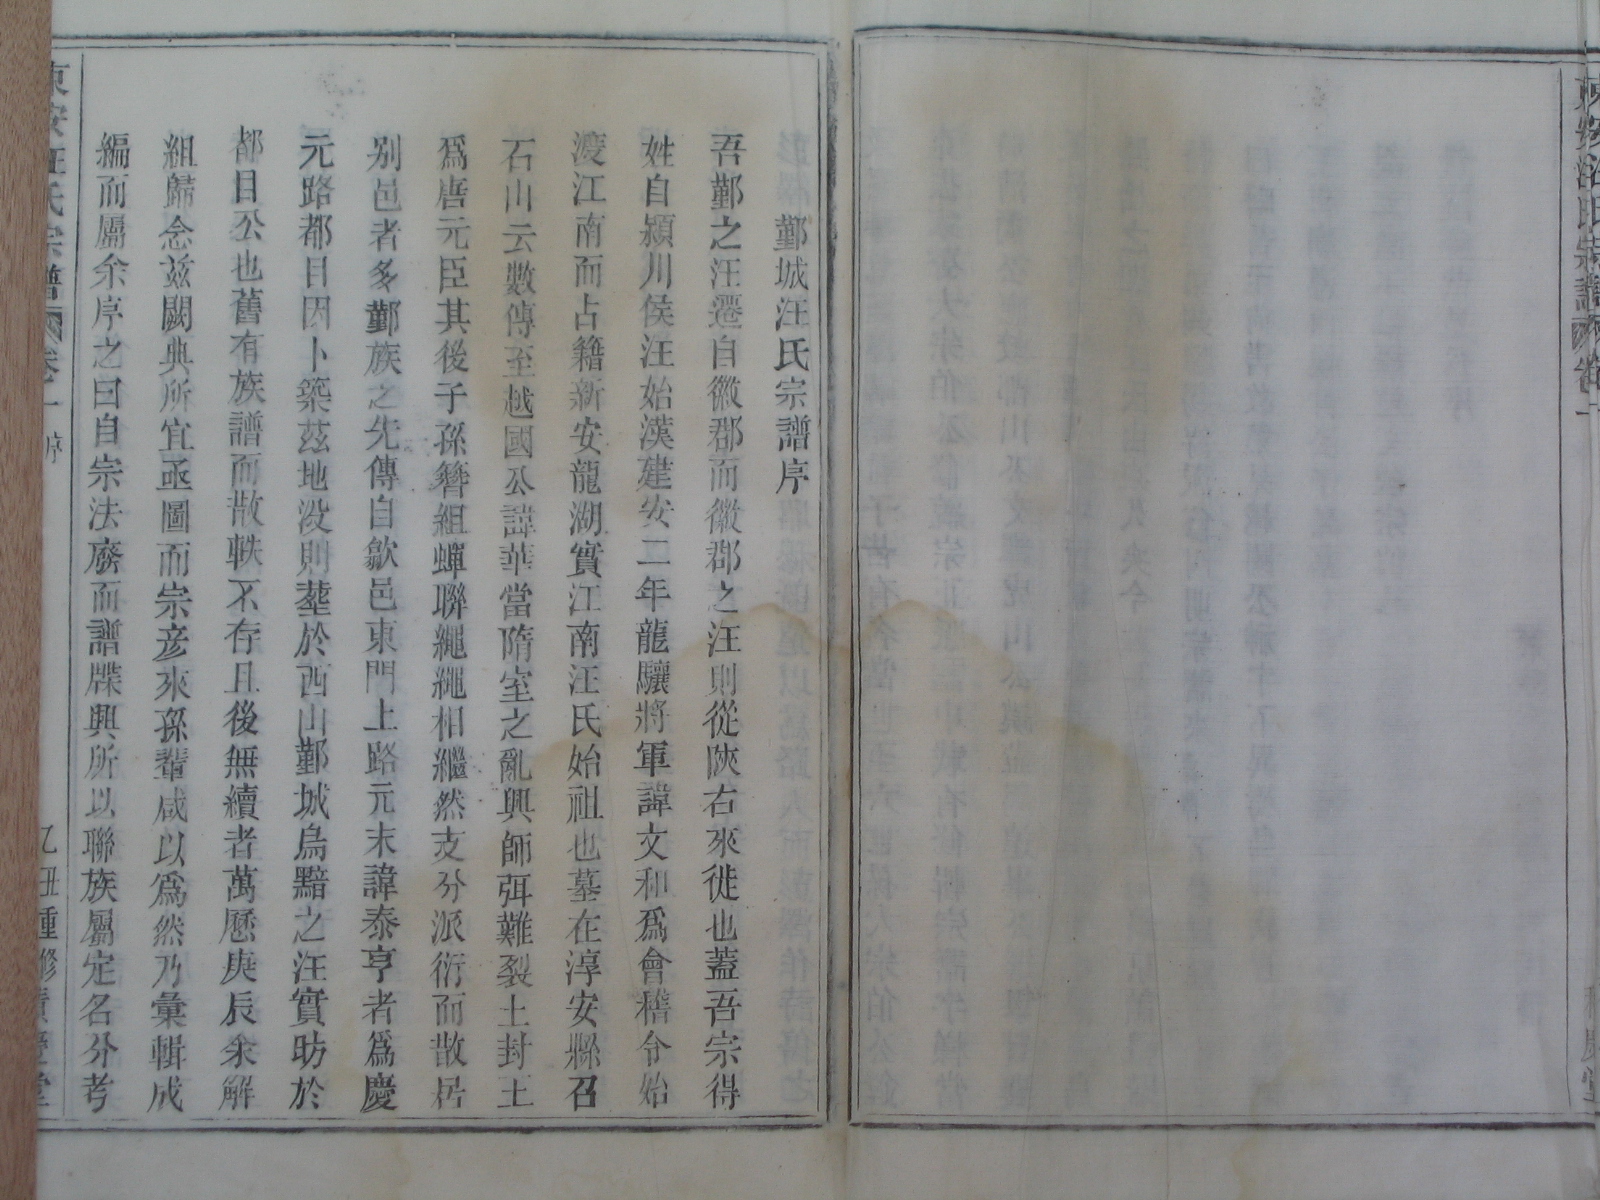 鄞城汪氏宗譜序
吾鄞之汪遷自徽郡而徽郡之汪則從陝右來徙也蓋吾宗得
姓自潁川侯汪始漢建安二年龍驤將軍諱文和爲會稽令始
渡江南而占籍新安龍湖實江南汪氏始祖也墓在淳安縣召
石山云數傳至越國公諱華當隋室之亂興師弭難裂土封王
爲唐元臣其後子孫簪組蟬聯繩繩相繼然支分派衍而散居
别邑者多鄞族之先傳自歙邑東門上路元末諱泰亨者爲慶
元路都目因卜築茲地没則塟於西山鄞城烏黯之汪實昉於
都目公也舊有族譜而散軼不存且後無續者萬厯庚辰余解
組歸念兹闕典所宜亟圖而宗彦來孫輩咸以爲然乃彙輯成
編而屬余序之曰自宗法廢而譜牒興所以聯族屬定名分考
東安汪氏宗譜 卷一 序 乙丑重修